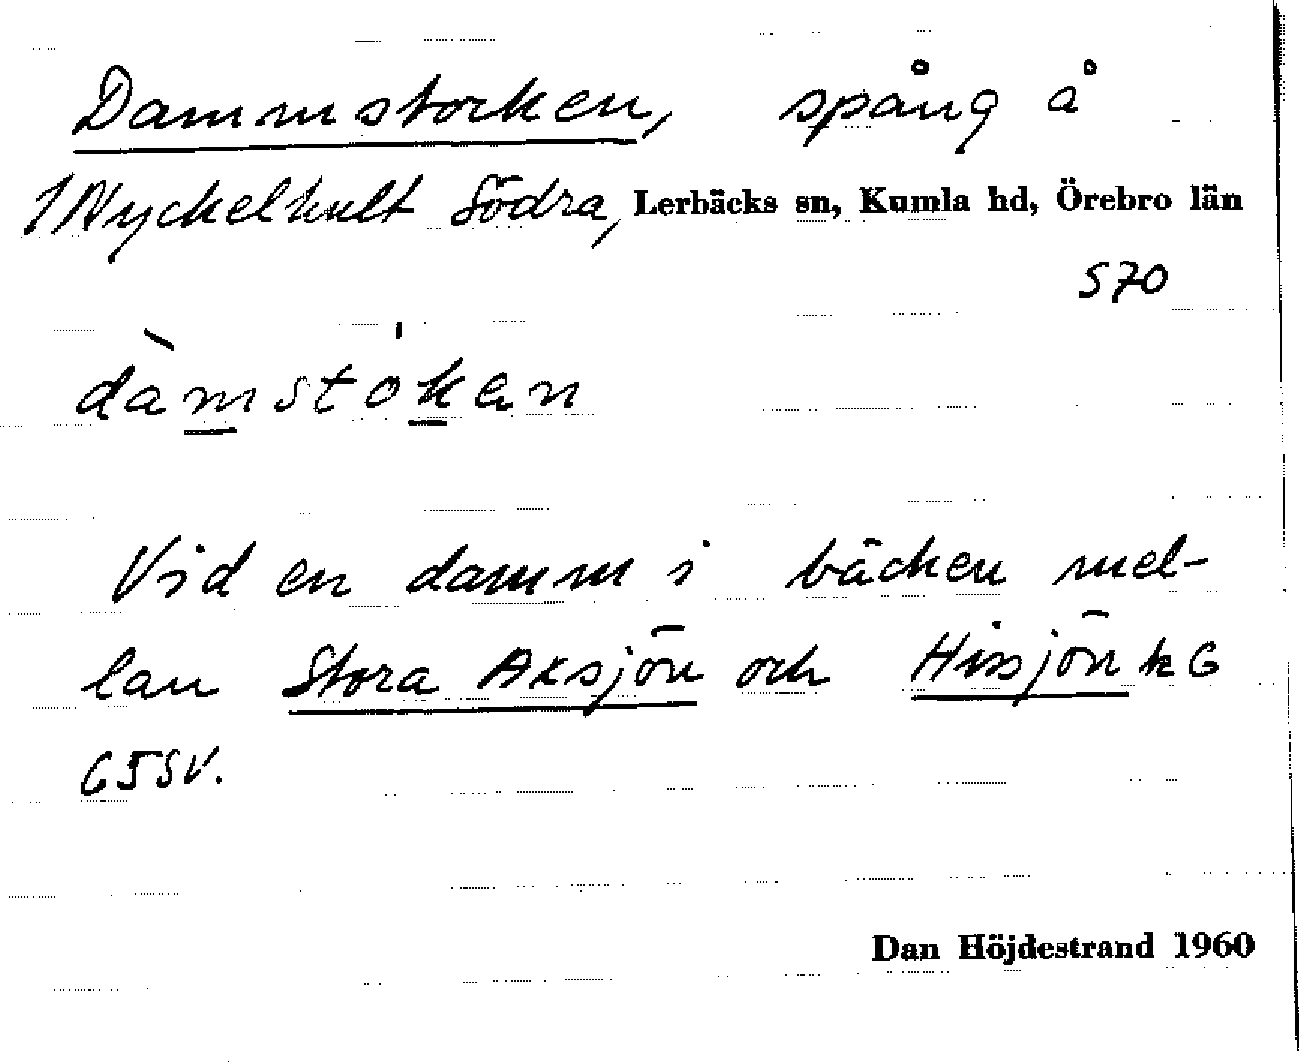 Dammstocken, spång å
1 Nyckelhult Södra, Lerbäcks sn, Kumla hd, Örebro län
S70
dàmstókan
Vid en damm i bäcken mel-
lan Stora Axsjön och Hissjön k G
G5SV.
Dan Höjdestrand 1960